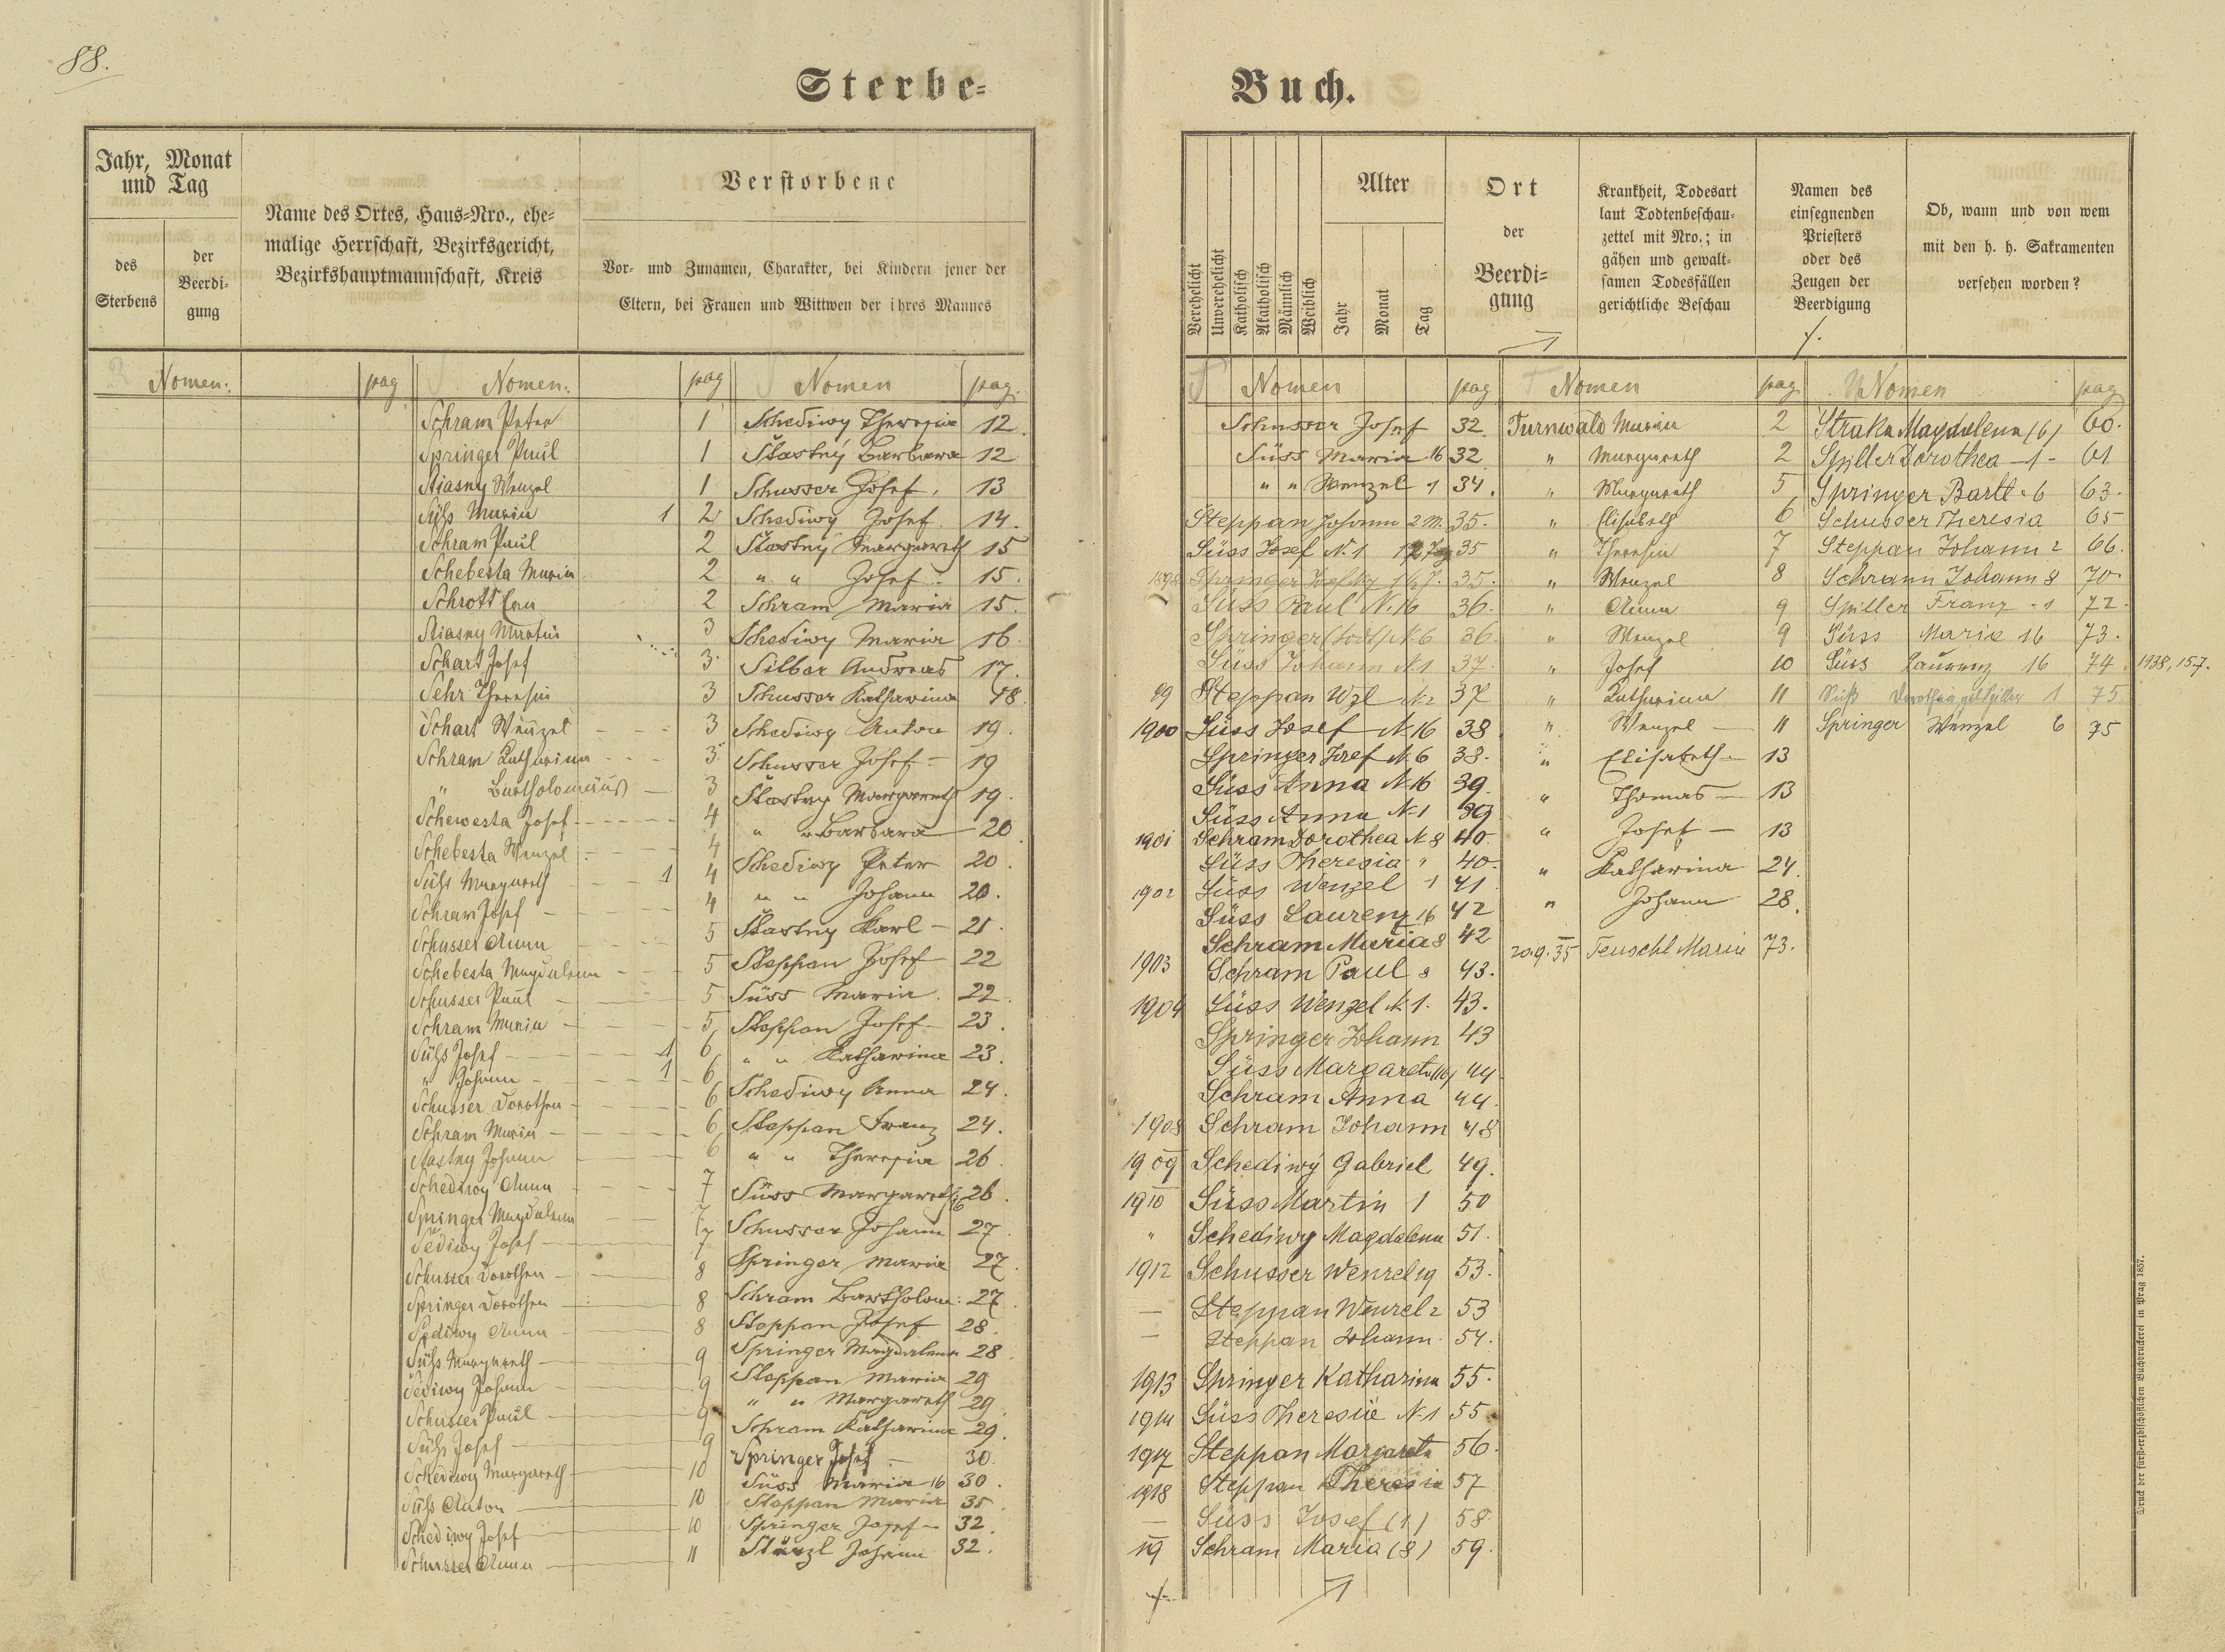 88.
Sterbe-
Jahr, Monat
und Tag
des
Sterbens
der
Beerdi-
gung
Name des Ortes, Haus-Nro., ehe-
malige Herrschaft, Bezirksgericht,
Bezirkshauptmannschaft, Kreis
Verstorbene
Vor- und Zunamen, Charakter, bei Kindern jener der
Eltern, bei Frauen und Wittwen der ihres Mannes
Nomen: pag
Nomen: pag
Schram Peter 1
Springer Paul 1
Stiasny Wenzel 1
Süß Maria 1 2
Schram Paul 2
Schebesta Maria 2
Schrott 2
Stiasny 3
Schart Josef 3
Sehr Theresia 3
Schart Wenzel 3
Schram Katharina 3
" Bartholomäus 3
Schewesta Josef 4
Schebesta Wenzel 4
Süß Margareth 1 4
Schram Josef 4
Schusser Anna 5
Schebesta Magdalena 5
Schusser Paul 5
Schram Maria 5
Süß Josef 1 6
" Johann 1 6
Schusser Dorothea 6
Schram Maria 6
Stastny Johann 6
Schediwy Anna 7
Springer Magdalena 7
Sediwy Josef 7
Schusser Dorothea 8
Springer Dorothea 8
Sediwy Anna 8
Süß Margareth 9
Sediwy Johann 9
Schusser Paul 9
Süß Josef 9
Schediwy Margareth 10
Süß Anton 10
Schediwy Josef 10
Schusser Anna 11
Nomen pag.
Schediwy Theresia 12
Šťastný Barbara 12
Schusser Josef 13
Schediwy Josef 14.
Šťastný Margareth 15
" " Josef 15.
Schram Maria 15.
Schediwy Maria 16
Silber Andreas 17.
Schusser Katharina 18.
Schediwy Anton 19.
Schusser Josef 19
Šťastny Margareth 19.
" " Barbara 20
Schediwy Peter 20.
" " Johann 20.
Šťastny Karl 21.
Steppan Josef 22
Süss Maria 22.
Steppan Josef 23.
" " Katharina 23.
Schediwy Anna 24.
Steppan Franz 24.
" " Theresia 26
Süss Margareth 16 26.
Schusser Johann 27.
Springer Maria 27.
Schram Bartholom: 27
Steppan Josef 28.
Springer Magdalena 28
Steppan Maria 29
" " Margareth 29
Schram Katharina 29.
Springer Josef 30.
Süss Maria 16 30.
Steppan Maria 35
Springer Josef 32.
Johann 32.
Buch.
Verehelicht
Unverehelicht
Katholisch
Akatholisch
Männlich
Weiblich
Alter
Jahr
Monat
Tag
Ort
der
Beerdi-
gung
Krankheit, Todesart
laut Todtenbeschau-
zettel mit Nro.; in
gähen und gewalt-
samen Todesfällen
gerichtliche Beschau
Namen des
einsegnenden
Priesters
oder des
Zeugen der
Beerdigung
Ob, wann und von wem
mit den h. h. Sakramenten
versehen worden?
Nomen pag
Schusser Josef 32.
Süss Maria 16 32
" " Wenzel 1 34.
Steppan Johann 2 M. 35.
Süss Josef N. 1 35
1898 Springer Josef 35.
Süss Paul N. 16 36.
Springer (todt) N. 6 36.
Süss Johann N. 1 37.
99 Steppan Wzl N. 2 37
1900 Süss Josef N. 16 38
Springer Josef N. 6 38.
Süss Anna N. 16 39.
Süss Anna N. 1 39
1901 Schram Dorothea N. 8 40.
Süss Theresia " 40.
1902 Süss Wenzel 1 41
Süss Laurenz 16 42
Schram Maria 8 42
1903 Schram Paul 8 43.
1904 Süss Wenzel N. 1. 43.
Springer Johann 43
Süss Margareta (16) 44
Schram Anna 44.
1908 Schram Johann 48
1909 Schediwý Gabriel 49.
1910 Süss Martin 1 50
" Schediwy Magdalena 51.
1912 Schusser Wenzel 19 53.
— Steppan Wenzel 2 53
— Steppan Johann 54.
1913 Springer Katharina 55.
1914 Süss Theresie N. 1 55
1917 Steppan Margareta 56.
1918 Steppan Theresia 57
— Süss Josef (1) 58
19 Schram Maria (8) 59.
Nomen pag
Turnwald Maria 2
" Margareth 2
" Margareth 5
" Elisabeth 6
" Theresia 7
" Wenzel 8
" Anna 9
" Wenzel 9
" Josef 10
" Katharina 11
" Wenzel — 11
" Elisabeth — 13
" Thomas — 13
" Josef — 13
" Katharina 24.
" Johann 28.
20.9.35 Teuschl Marie 73.
Nomen pag
Straka Magdalena (6) 60.
Spiller Dorothea — 1 - 61
Springer Bartl. 6 63.
Schusser Theresia 65
Steppan Johann 2 66.
Schram Johann 8 70.
Spiller Franz 1 72.
Süss Marie 16 73.
Süss Laurenz 16 74 1938, 157.
Süß Dorothea geb. Spiller 1 75.
Springer Wenzel 6 75
Druck der fürsterzbischöflichen Buchdruckerei in Prag 1857.